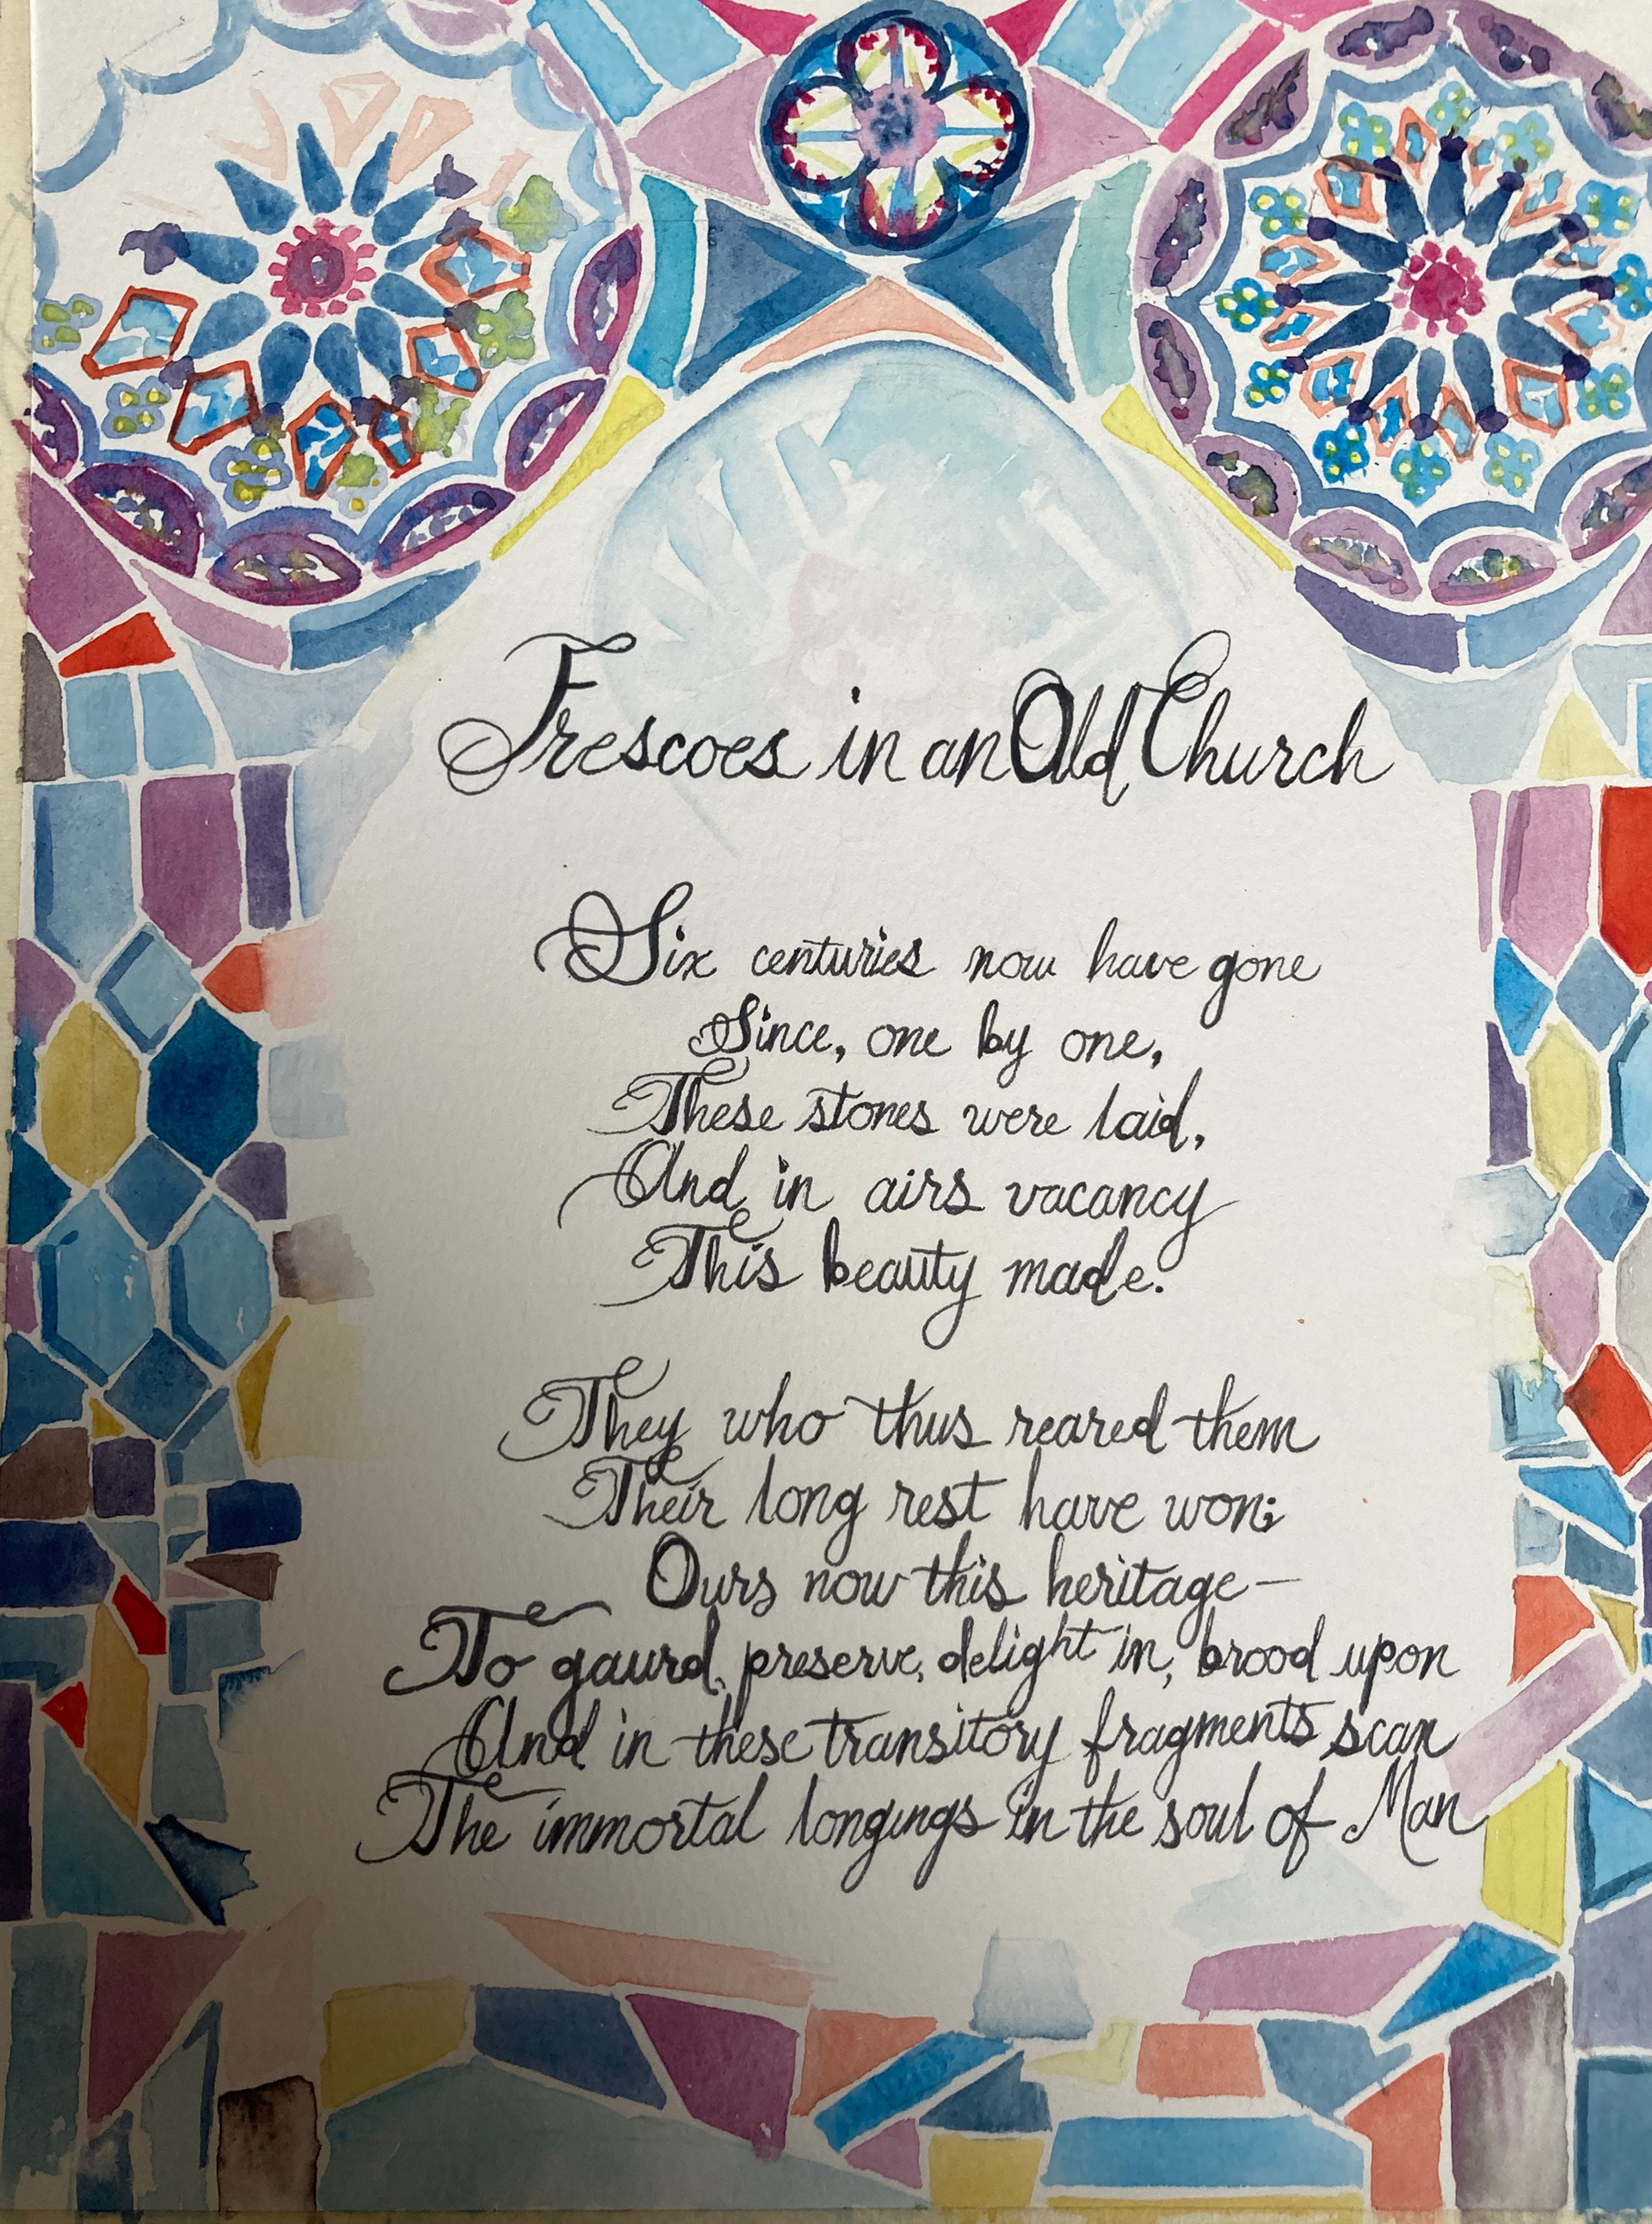 Frescoes in an Old Church
Six centuries now have gone
Since, one by one,
These stones were laid,
And in airs vacancy
This beauty made.
They who thus reared them
Their long rest have won;
Ours now this heritage—
To gaurd, preserve, delight in, brood upon
And in these transitory fragments scan
The immortal longings in the soul of Man